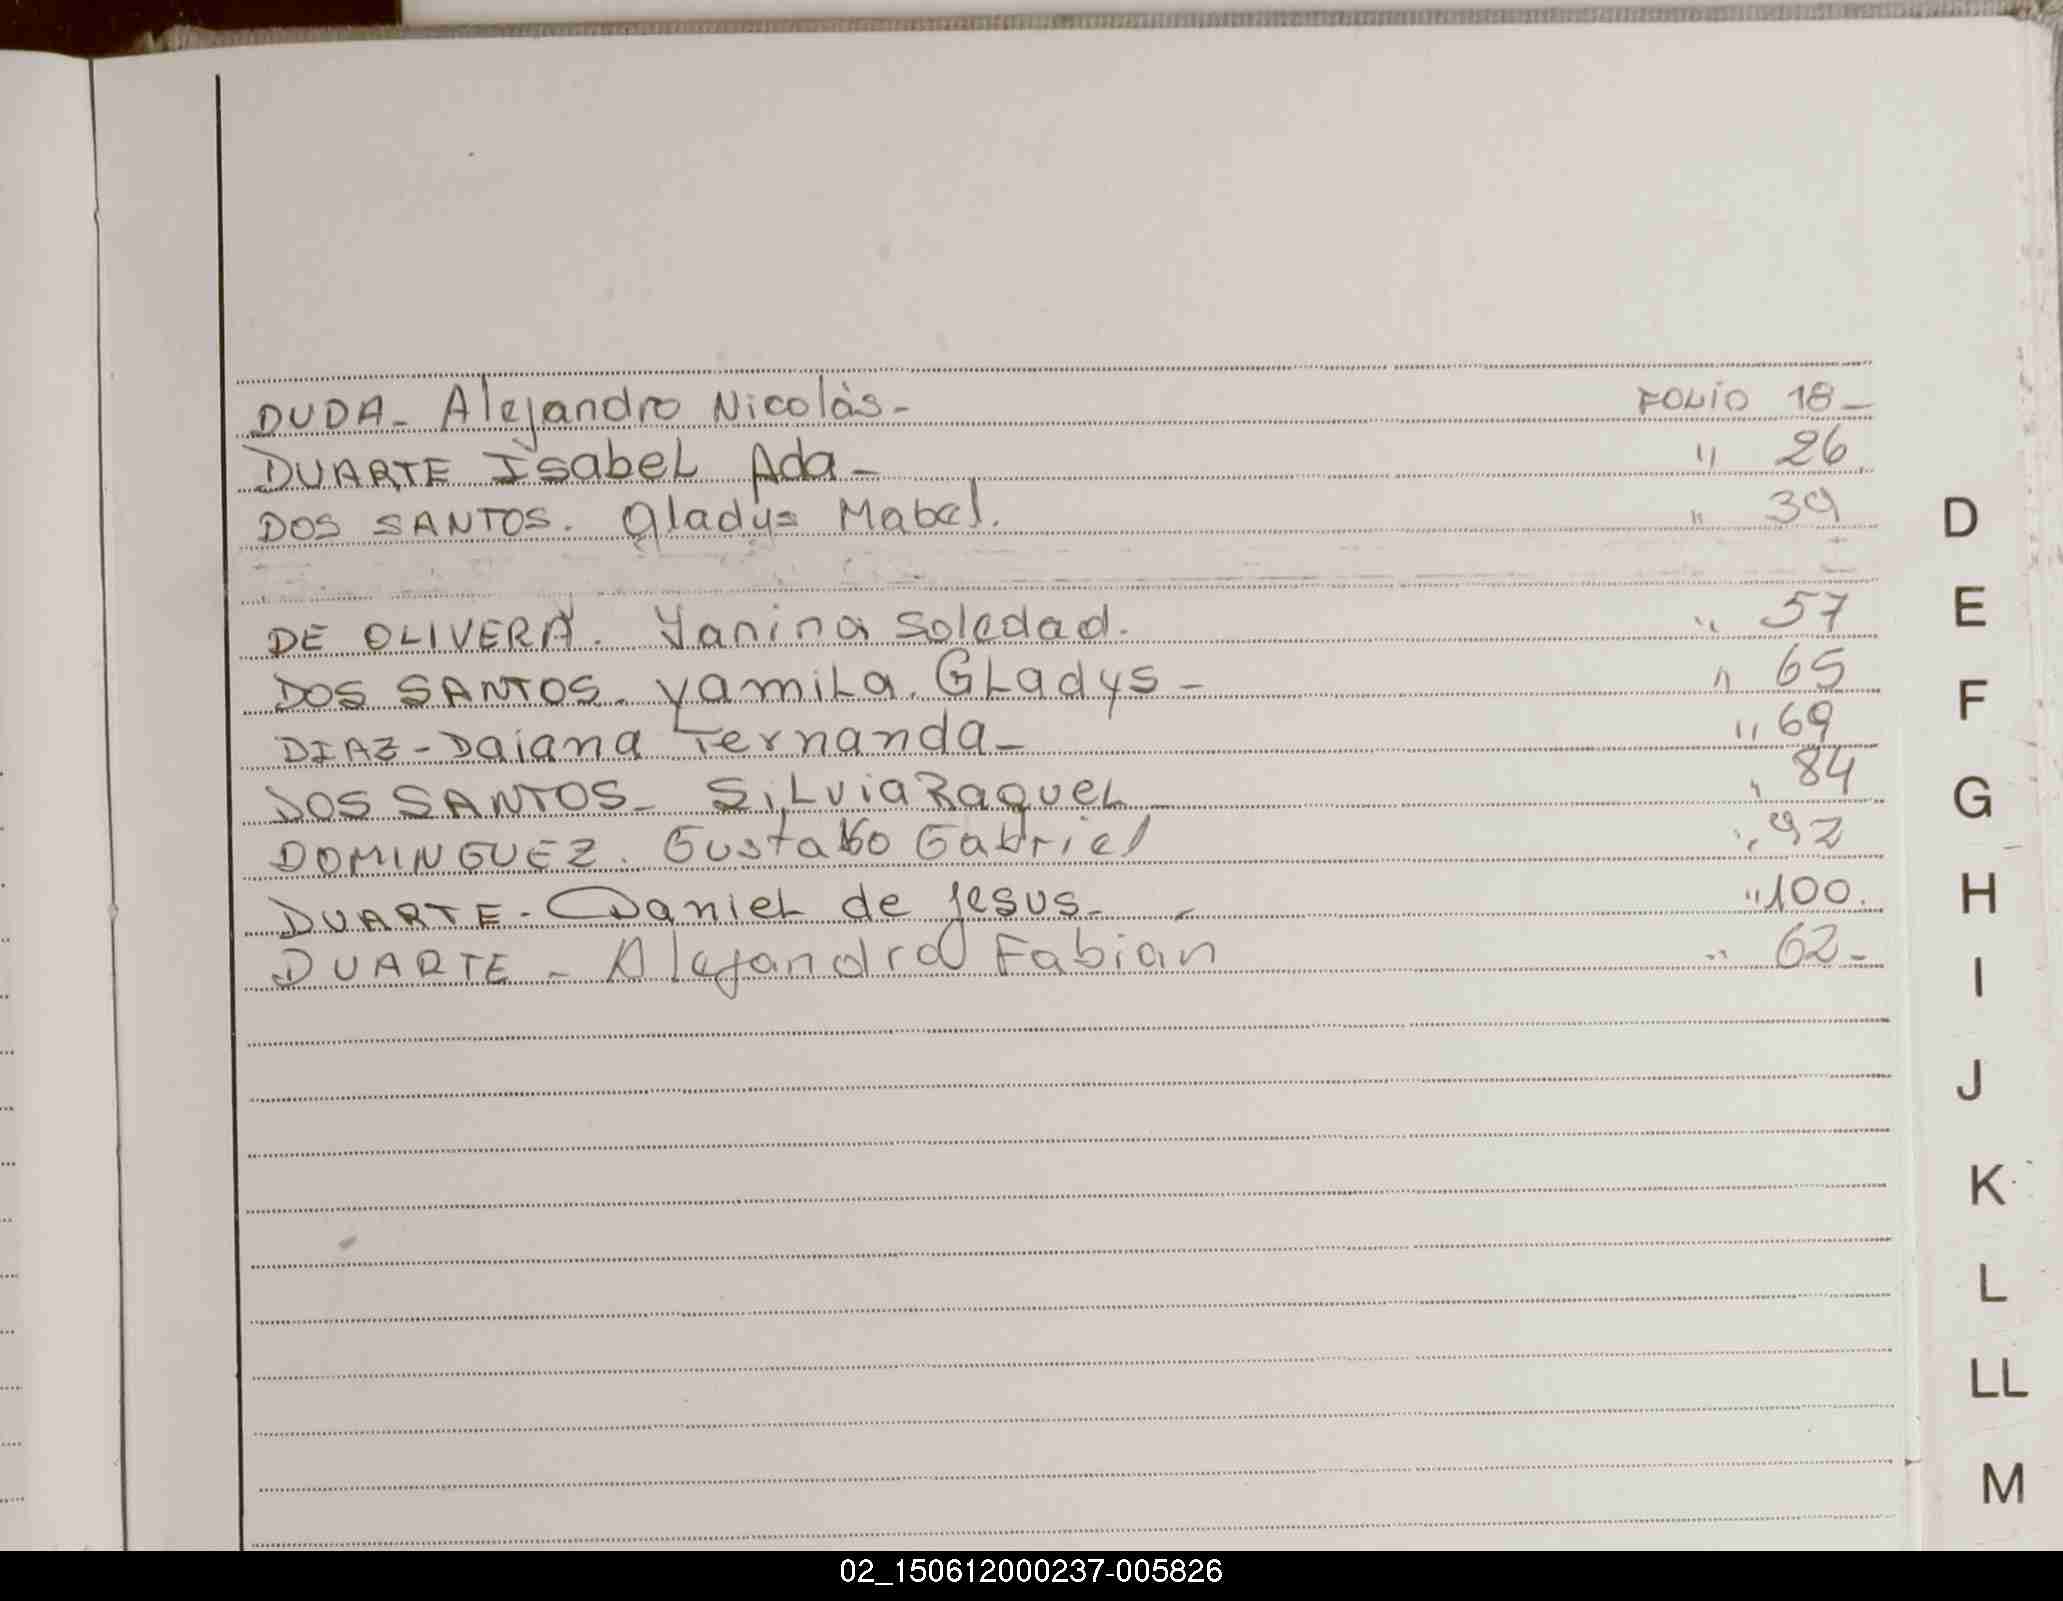 DUDA- Alejandro Nicolás- FOLIO 18-
DUARTE Isabel Ada- " 26
DOS SANTOS. Gladys Mabel. " 39
DE OLIVERA. Yanina Soledad. " 57
DOS SANTOS- Yamila. Gladys- " 65
DIAZ-Daiana Fernanda- " 69
DOS SANTOS- Silvia Raquel- " 84
DOMINGUEZ. Gustavo Gabriel " 92
DUARTE- Daniel de Jesus- - " 100.
DUARTE- Alejandro Fabián " 62-
D
E
F
G
H
I
J
K
L
LL
M
02_150612000237-005826